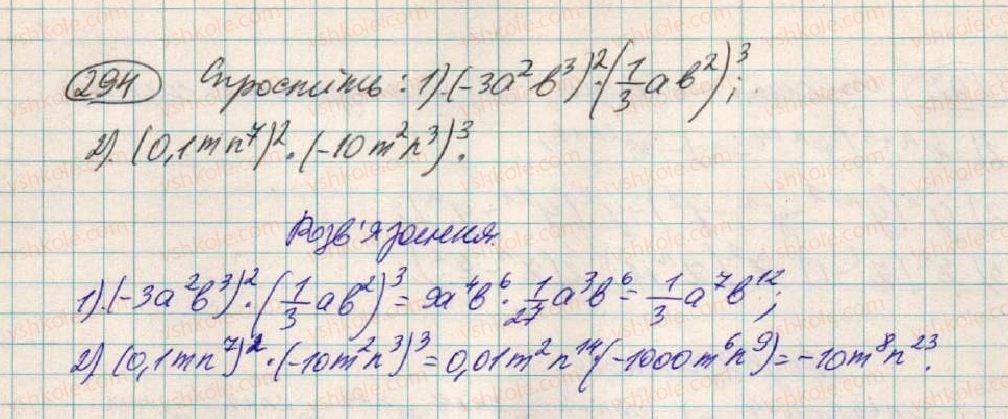 294 Спростить: 1).(-3a²b³)²·(1/3ab²)³;
2). (0,1mn⁷)²·(-10m²n³)³.
Розв'язання.
1).(-3a²b³)²·(1/3ab²)³=9a⁴b⁶·1/27a³b⁶=1/3a⁷b¹²;
2).(0,1mn⁷)²·(-10m²n³)³=0,01m²n¹⁴·(-1000m⁶n⁹)=-10m⁸n²³.